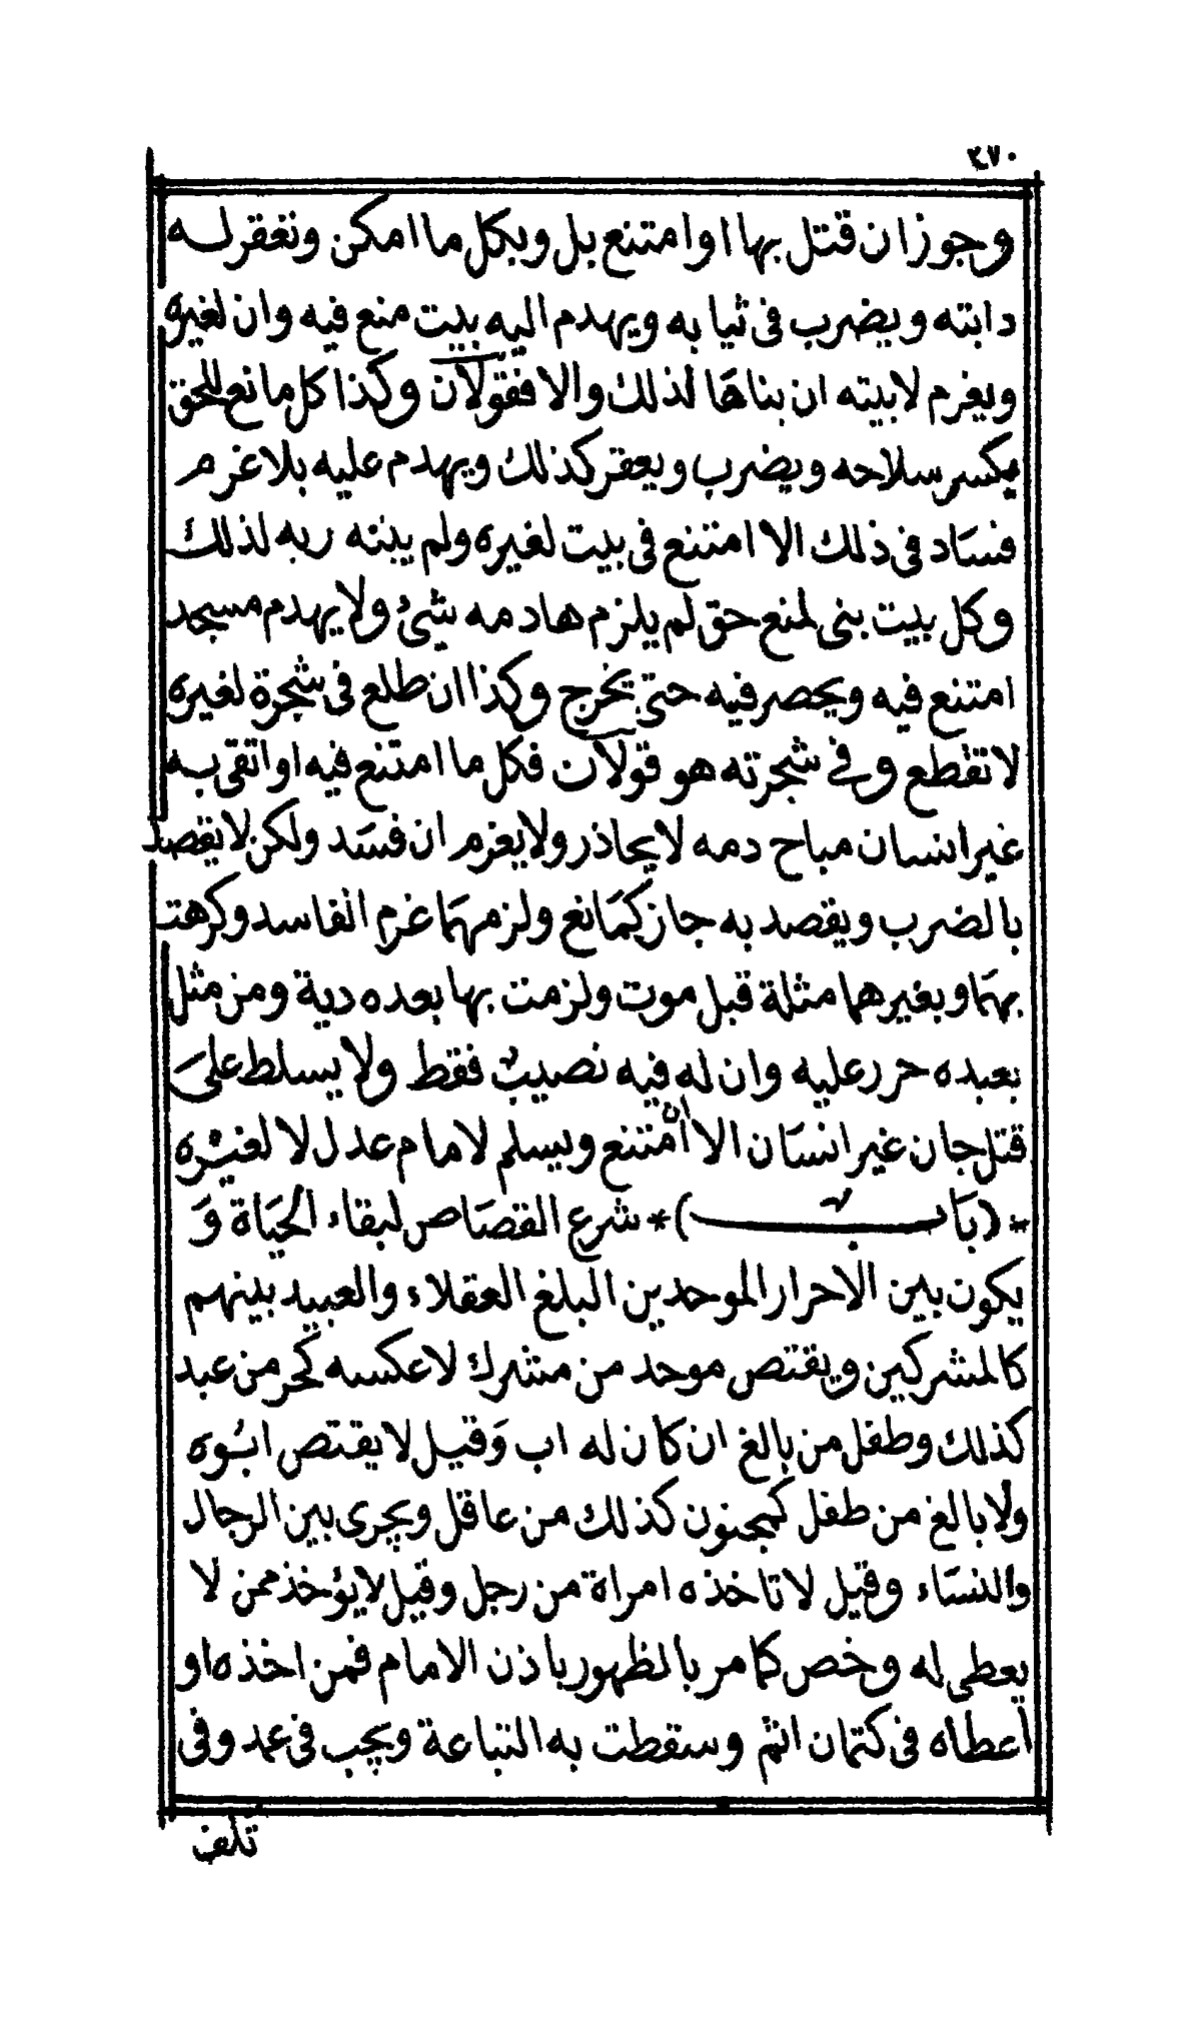 ٢٧٠
وجوزان قتل بها او امتنع بل وبكل ما امكن وتعقر له
دابته ويضرب فى ثيابه ويهدم اليه بيت منع فيه وان لغيره
ويغرم لابيته ان بناها لذلك والا فقولان وكذا كل مانع للحق
يكسر سلاحه ويضرب ويعقر كذلك ويهدم عليه بلا غرم
فساد فى ذلك الا امتنع فى بيت لغيره ولم يبنه ربه لذلك
وكل بيت بنى لمنع حق لم يلزم هادمه شئ ولا يهدم مسجد
امتنع فيه ويحصر فيه حتى يخرج وكذا ان طلع فى شجرة لغيره
لا تقطع وفى شجرته هو قولان فكل ما امتنع فيه او اتقى به
غير انسان مباح دمه لا يحاذر ولا يغرم ان فسد ولكن لا يقصد
بالضرب ويقصد به جاز كمانع ولزمهما غرم الفاسد وكرهت
بهما وبغيرهما مثلة قبل موت ولزمت بها بعده دية ومن مثل
بعبده حرر عليه وان له فيه نصيب فقط ولا يسلط على
قتل جان غير انسان الا ان امتنع ويسلم لامام عدل لا لغيره
*(باب)* شرع القصاص لبقاء الحياة و
يكون بين الاحرار الموحدين البلغ العقلاء والعبيد بينهم
كالمشركين ويقتص موحد من مشرك لا عكسه كحر من عبد
كذلك وطفل من بالغ ان كان له اب وقيل لا يقتص ابوه
ولا بالغ من طفل كمجنون كذلك من عاقل ويجرى بين الرجال
والنساء وقيل لا تاخذه امراة من رجل وقيل لا يؤخذ ممن لا
يعطى له وخص كما مر بالظهور باذن الامام فمن اخذه او
اعطاه فى كتمان اثم وسقطت به التباعة ويجب فى عمد وفى
تلف